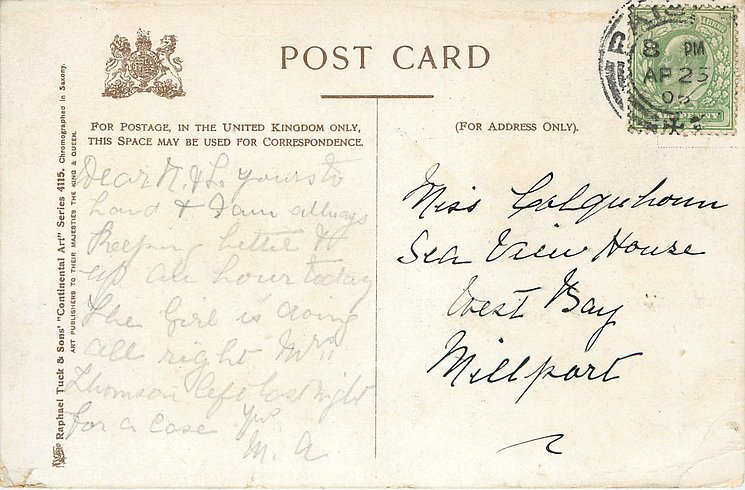 POST CARD
FOR POSTAGE, IN THE UNITED KINGDOM ONLY,
THIS SPACE MAY BE USED FOR CORRESPONDENCE.
(FOR ADDRESS ONLY).
8 PM
AP 23
Dear N. & L yours to
hand & I am allways
keeping better &
up an hour today
the Girl is doing
all right Mrs
Thomson left last night
for a case Yrs
M. A.
Miss Colquhoun
Sea View House
West Bay
Millport
Raphael Tuck & Sons' "Continental Art" Series 4115. Chromographed in Saxony.
ART PUBLISHERS TO THEIR MAJESTIES THE KING & QUEEN.